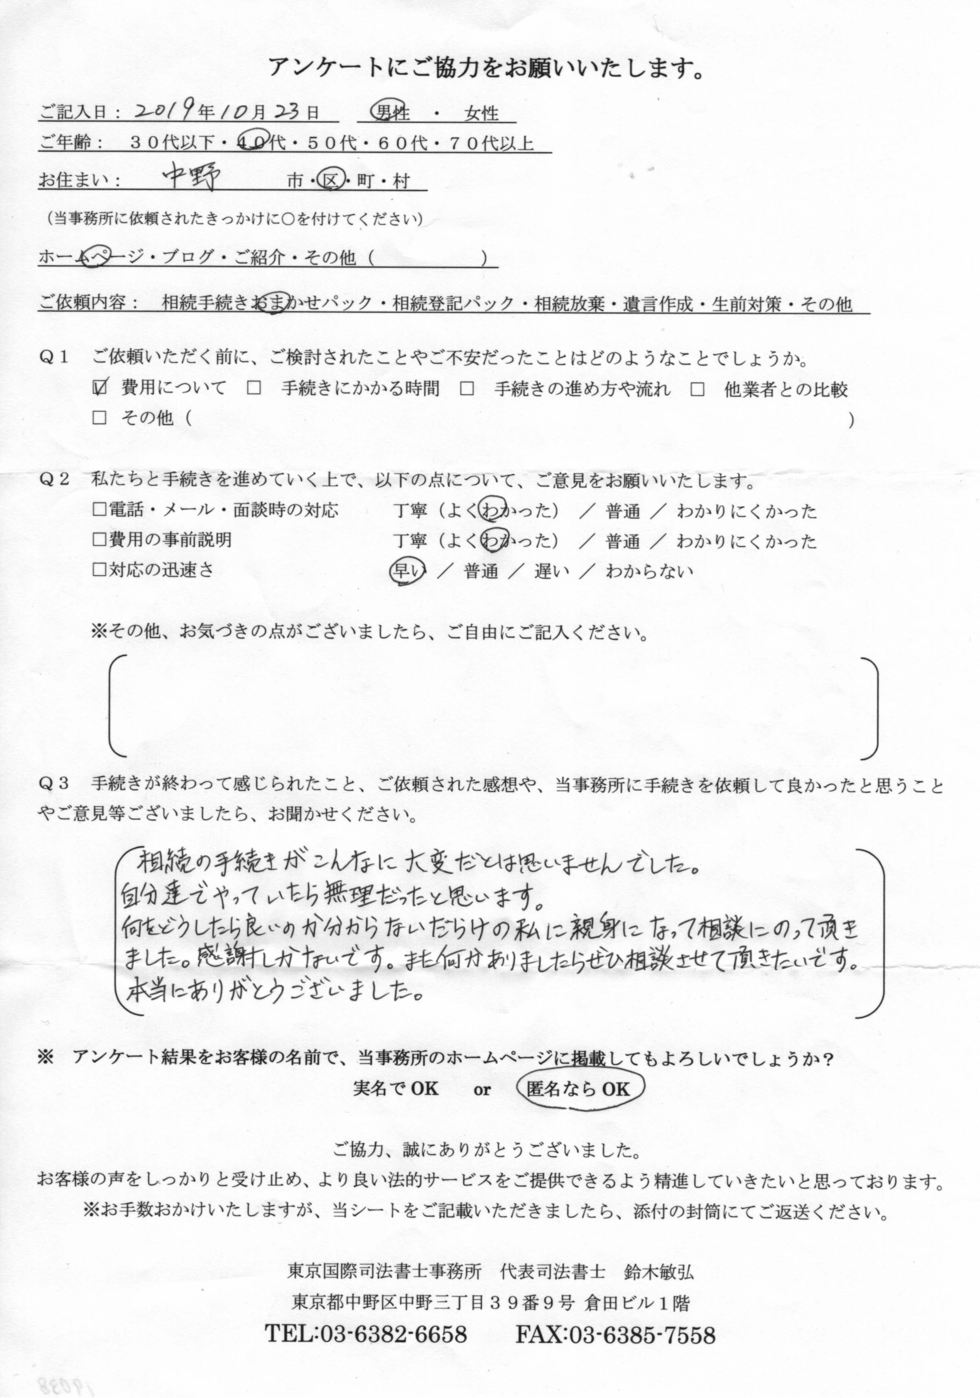 アンケートにご協力をお願いいたします。
ご記入日： 2019年10月23日　男性　・　女性
ご年齢：　３０代以下・４０代・５０代・６０代・７０代以上
お住まい：　中野　市・区・町・村
（当事務所に依頼されたきっかけに○を付けてください）
ホームページ・ブログ・ご紹介・その他（　　　　　　）
ご依頼内容：　相続手続きおまかせパック・相続登記パック・相続放棄・遺言作成・生前対策・その他
Ｑ１　ご依頼いただく前に、ご検討されたことやご不安だったことはどのようなことでしょうか。
☑ 費用について　□　手続きにかかる時間　□　手続きの進め方や流れ　□　他業者との比較
□ その他（　　　　　　　　　　　　）
Ｑ２　私たちと手続きを進めていく上で、以下の点について、ご意見をお願いいたします。
□電話・メール・面談時の対応　　丁寧（よくわかった）　／　普通　／　わかりにくかった
□費用の事前説明　　丁寧（よくわかった）　／　普通　／　わかりにくかった
□対応の迅速さ　　早い　／　普通　／　遅い　／　わからない
※その他、お気づきの点がございましたら、ご自由にご記入ください。
Ｑ３　手続きが終わって感じられたこと、ご依頼された感想や、当事務所に手続きを依頼して良かったと思うこと
やご意見等ございましたら、お聞かせください。
相続の手続きがこんなに大変だとは思いませんでした。
自分達でやっていたら無理だったと思います。
何をどうしたら良いのか分からないだらけの私に親身になって相談にのって頂き
ました。感謝しかないです。また何かありましたらぜひ相談させて頂きたいです。
本当にありがとうございました。
※　アンケート結果をお客様の名前で、当事務所のホームページに掲載してもよろしいでしょうか？
実名でOK　　or　　匿名ならOK
ご協力、誠にありがとうございました。
お客様の声をしっかりと受け止め、より良い法的サービスをご提供できるよう精進していきたいと思っております。
※お手数おかけいたしますが、当シートをご記載いただきましたら、添付の封筒にてご返送ください。
東京国際司法書士事務所　代表司法書士　鈴木敏弘
東京都中野区中野三丁目３９番９号 倉田ビル１階
TEL:03-6382-6658　　FAX:03-6385-7558